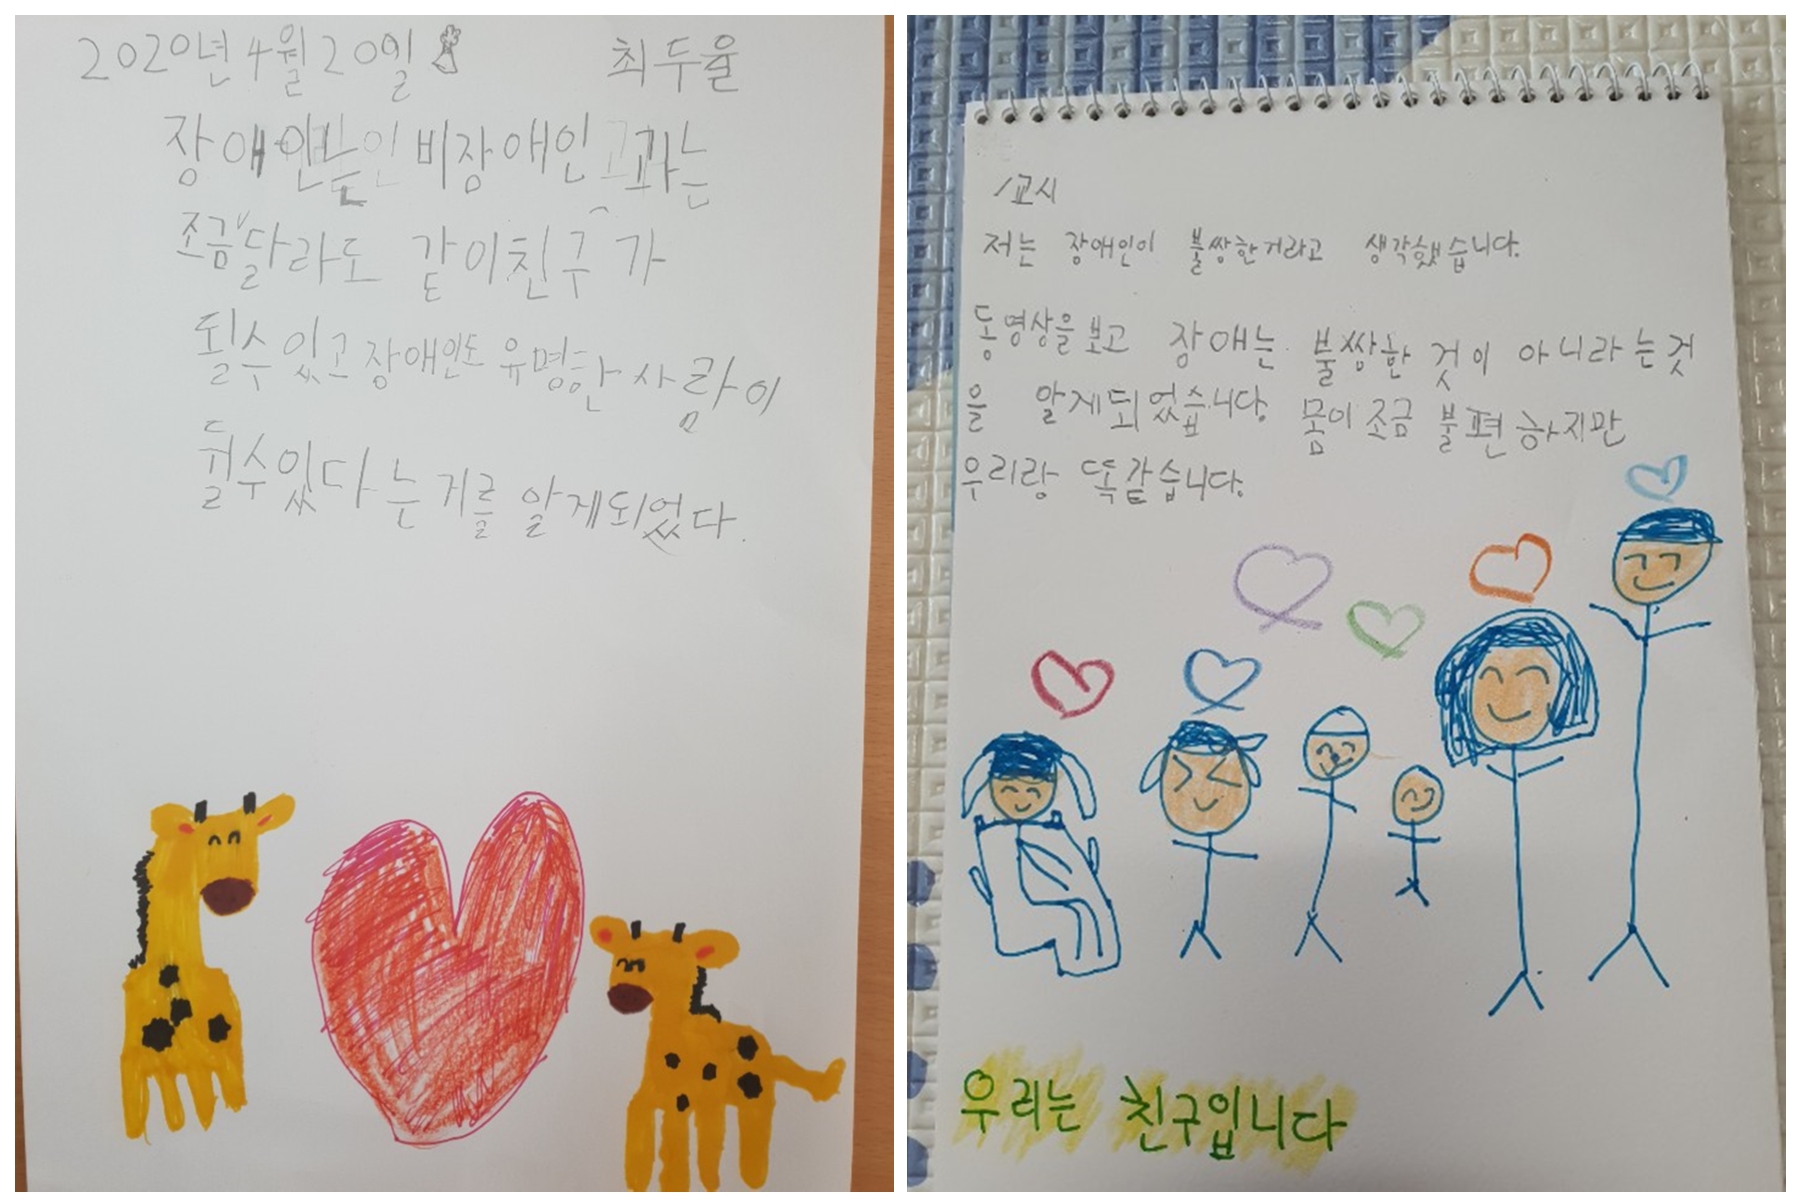 2020년 4월 20일 최두율
장애인는 비장애인과는
조금 달라도 같이친구가
될수 있고 장애인도 유명한 사람이
될수있다는 거를 알게되었다.
1교시
저는 장애인이 불쌍한거라고 생각했습니다.
동영상을 보고 장애는 불쌍한 것이 아니라는것
을 알게되었습니다. 몸이 조금 불편하지만
우리랑 똑같습니다.
우리는 친구입니다